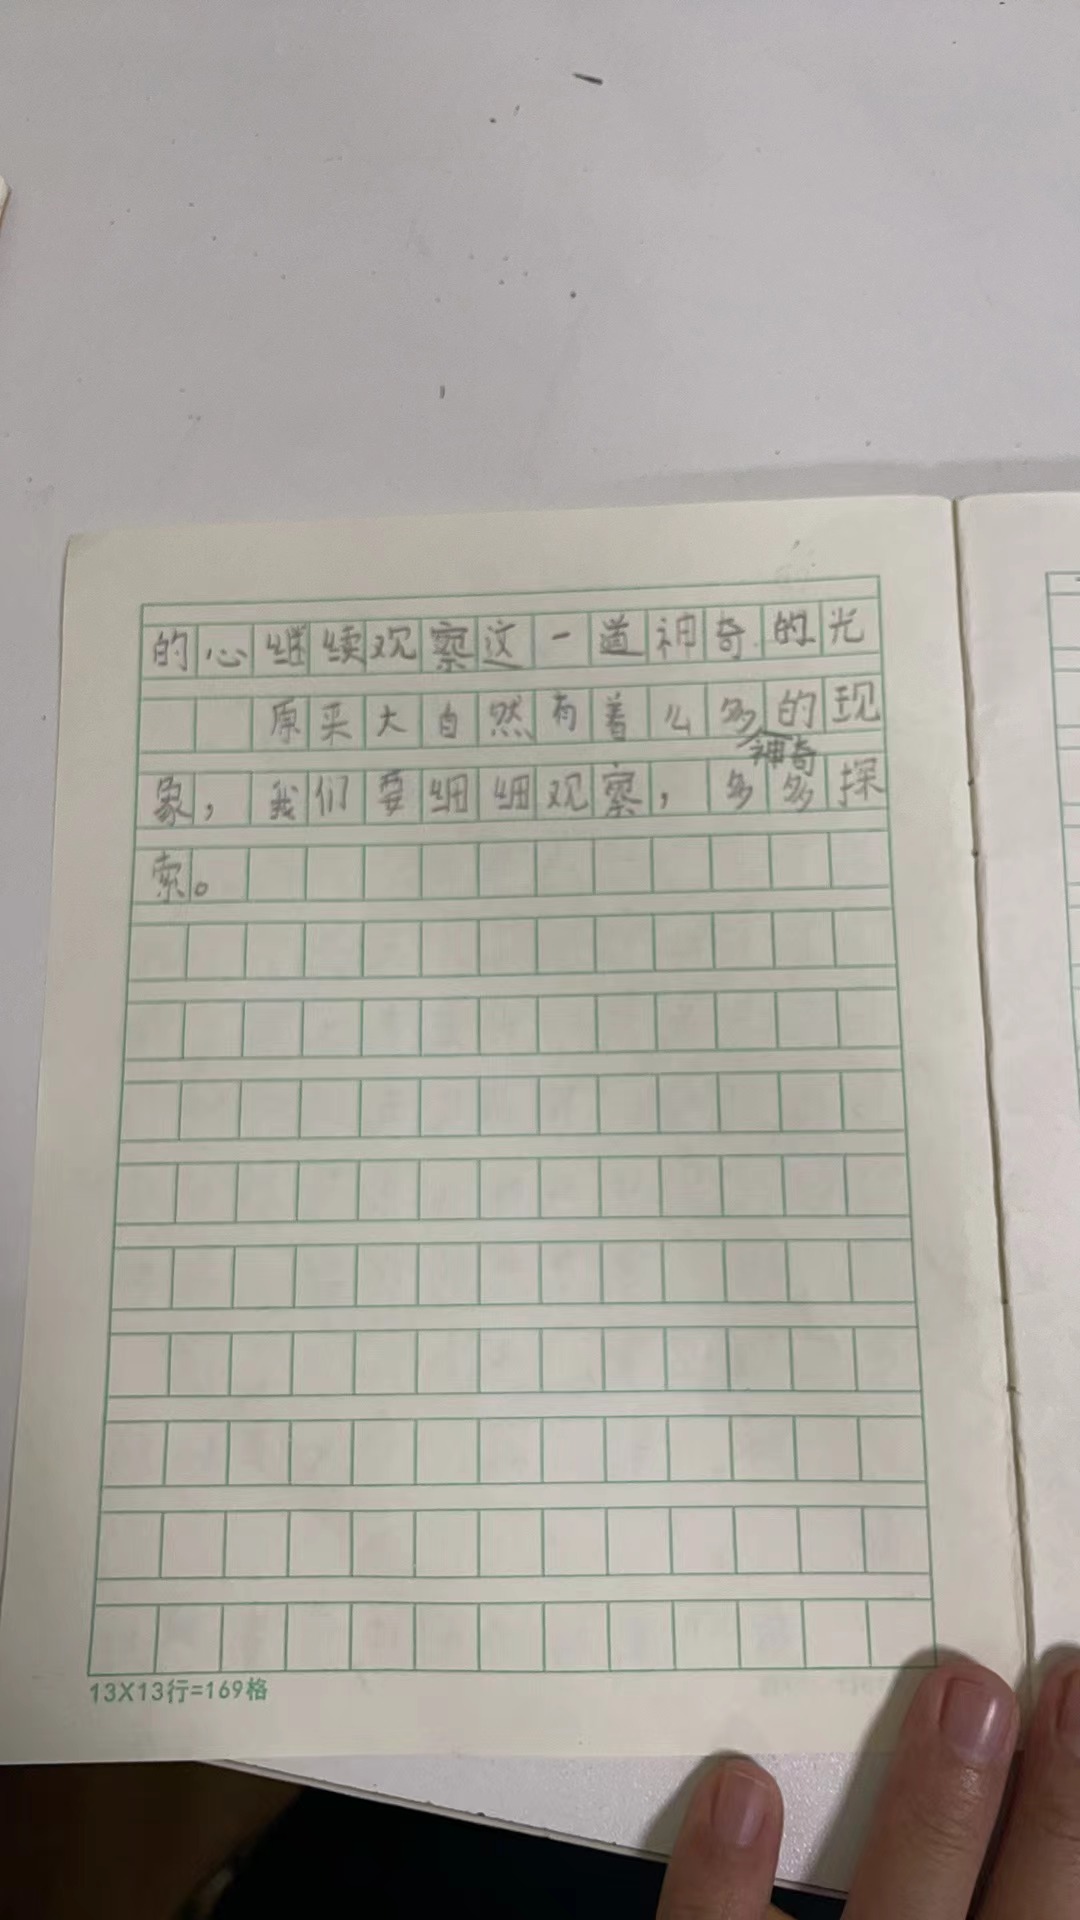 的心继续观察这一道神奇的光
原来大自然有着么多的现
神奇
象，我们要细细观察，多多探
索。
13X13行=169格